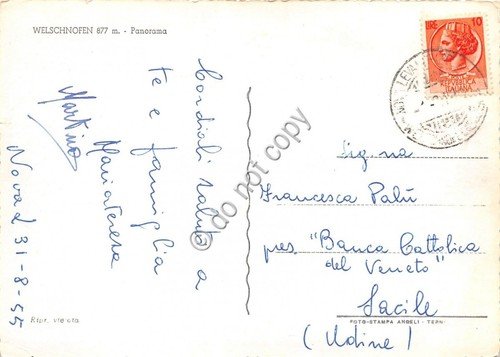 WELSCHNOFEN 877 m. - Panorama
Cordiali saluti a
te e famiglia
Mariateresa
Martino
31-8-55
Ripr. vietata
do not copy
LIRE 10
ITALIANA
Sig.na
Francesca Palù
pres. "Banca Cattolica
del Veneto"
Sacile
FOTO-STAMPA ANGELI - TERNI
(Udine)